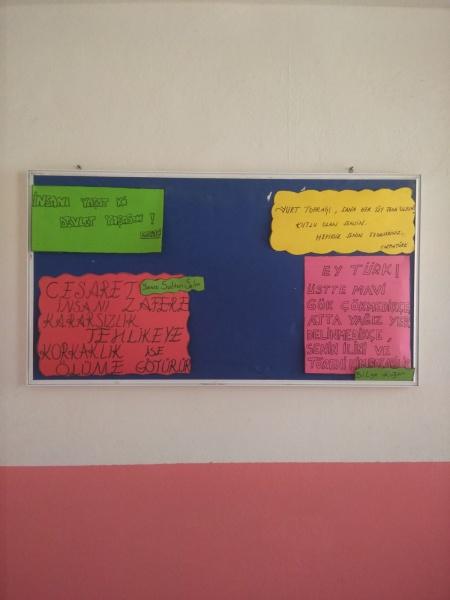 İNSANI YAŞAT Kİ
DEVLET YAŞASIN !
YURT TOPRAĞI, SANA HER ŞEY FEDA OLSUN
KUTLU OLAN SENSİN.
HEPİMİZ SENİN
ATATÜRK
CESARET
İNSANI ZAFERE
KARARSIZLIK
TEHLİKEYE
KORKAKLIK İSE
ÖLÜME GÖTÜRÜR
Yavuz Sultan Selim
EY TÜRK!
ÜSTTE MAVİ
GÖK ÇÖKMEDİKÇE
ALTTA YAĞIZ YER
DELİNMEDİKÇE,
SENİN İLİNİ VE
TÖRENİ KİM BOZABİLİR
Bilge Kağan